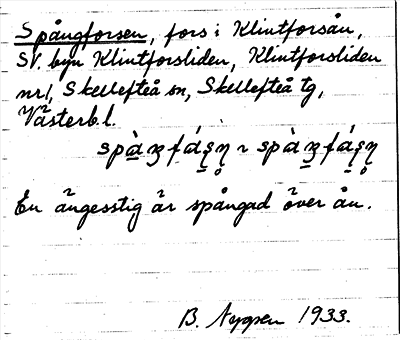 Spångforsen, fors i Klintforsån,
SV. byn Klintforsliden, Klintforsliden
nr 1, Skellefteå sn, Skellefteå tg,
Västerb. l.
En ängesstig är spångad över ån.
B. 1933.